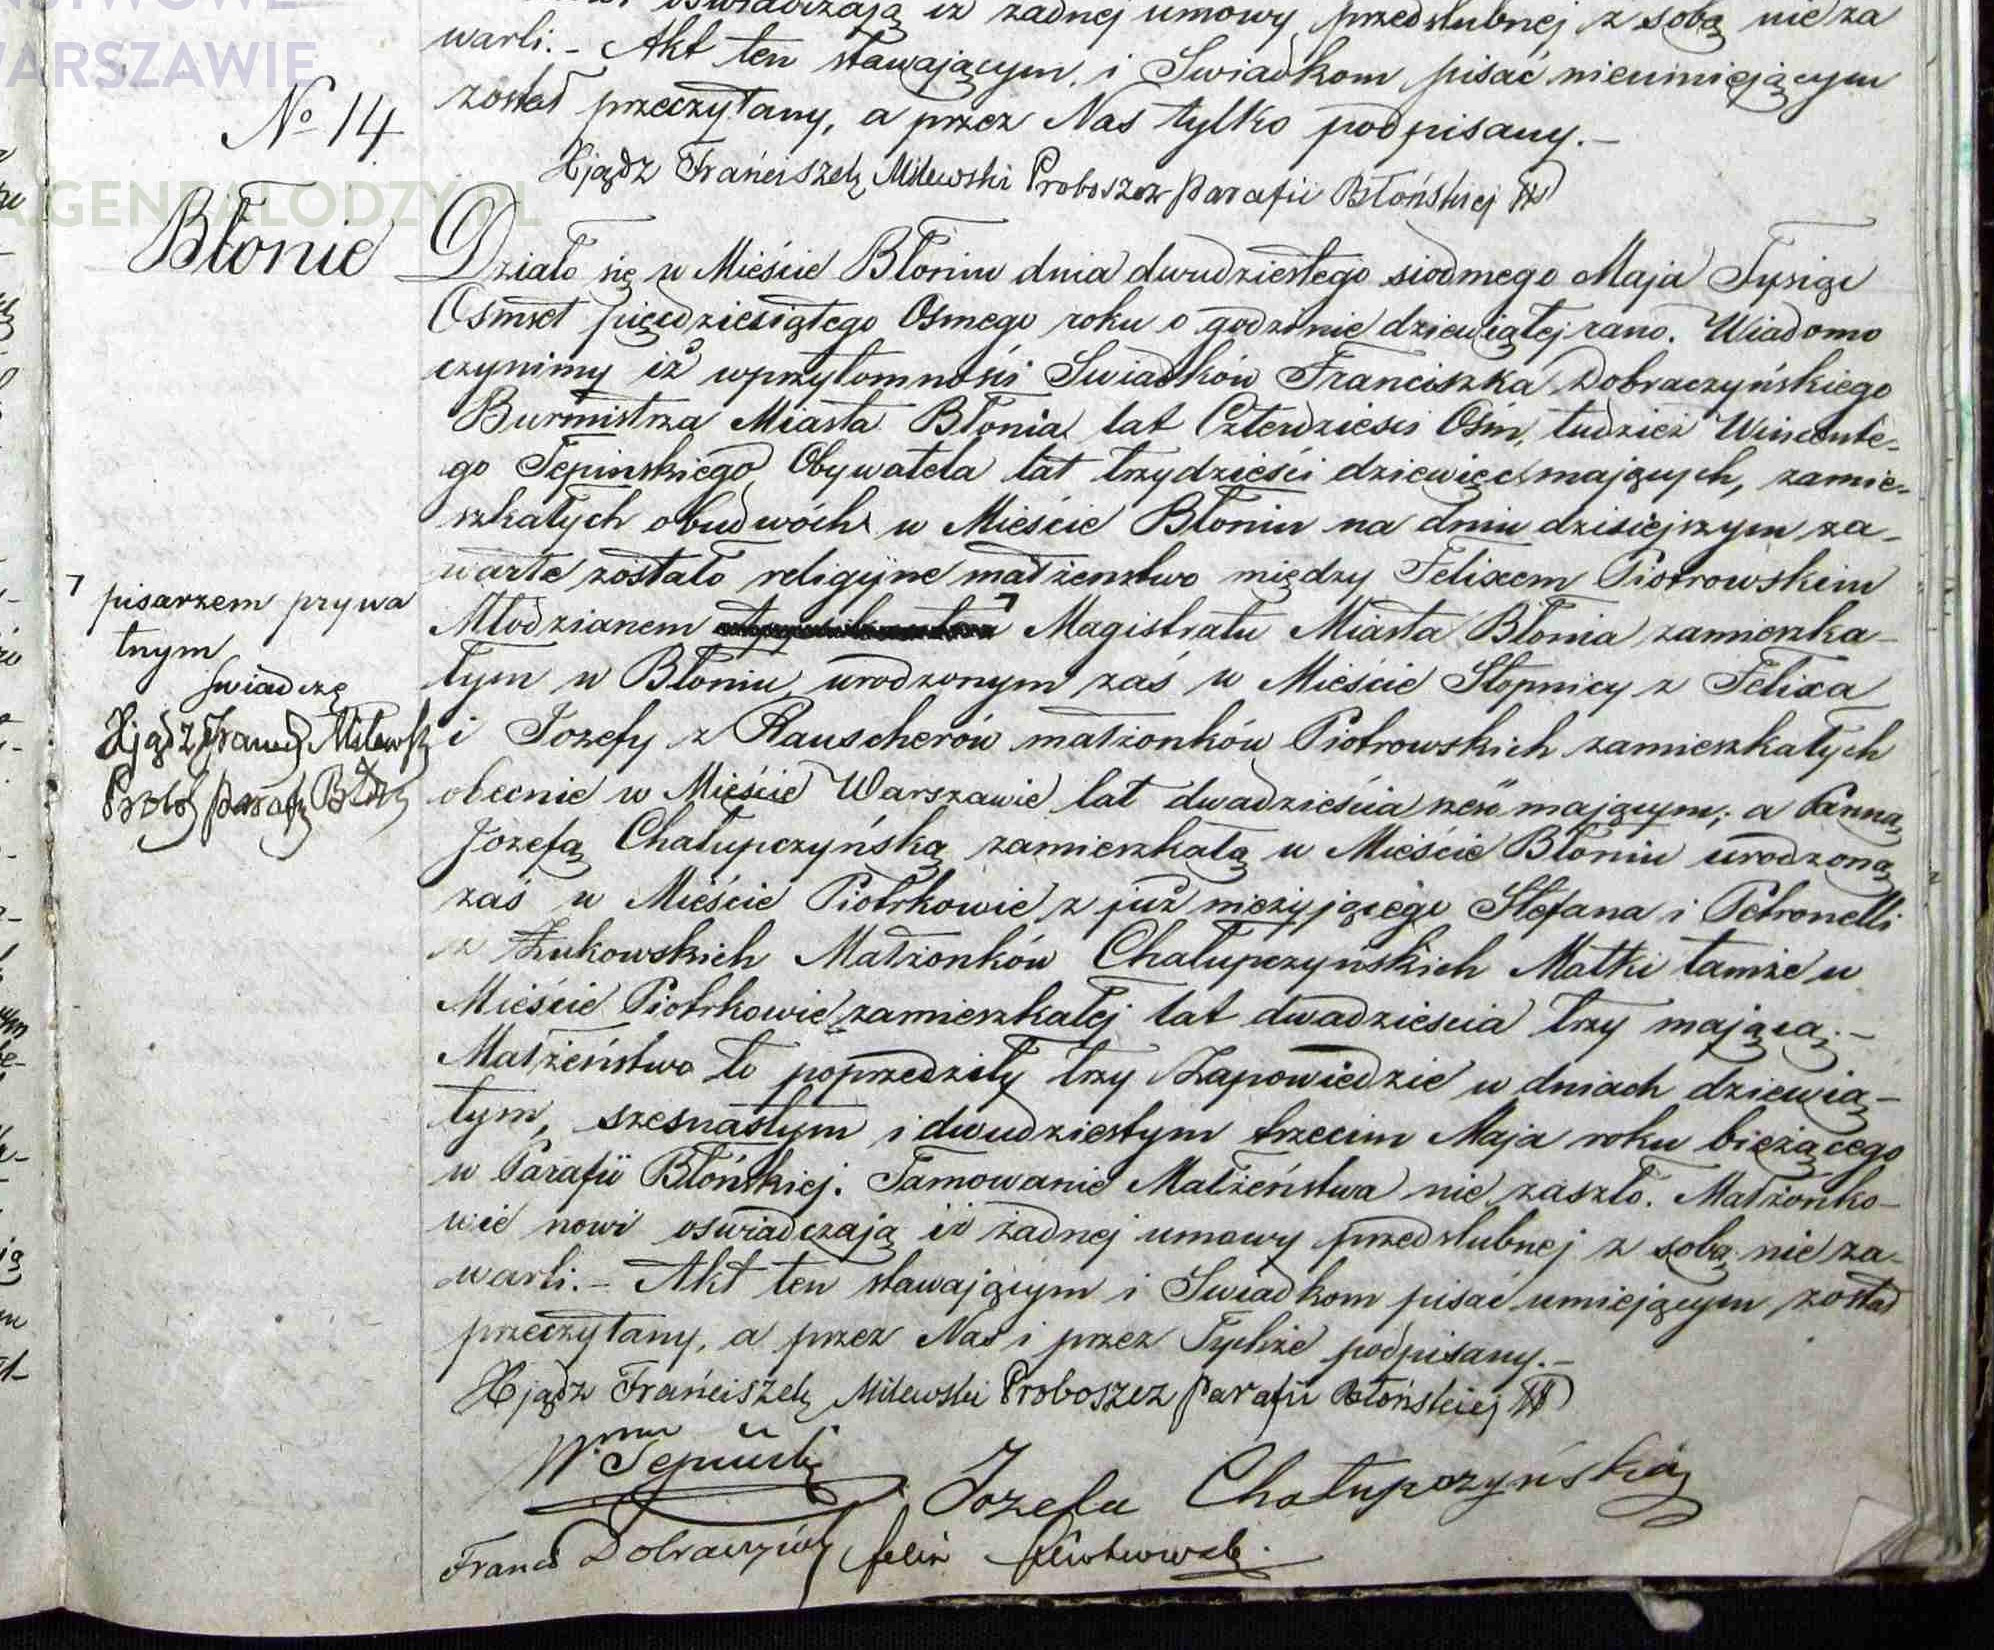 oświadczają iż żadnej umowy przedślubnej z sobą nie za
warli. – Akt ten stawającym i Swiadkom pisać nieumiejącym
został przeczytany, a przez Nas tylko podpisany. –
Xjądz Franciszek Milewski Proboszcz Parafii Błońskiej
PAŃSTWOWE
WARSZAWIE
GENEALODZY.PL
№ 14
Błonie
Działo się w Mieście Błoniu dnia dwudziestego siodmego Maja Tysiąc
Osmset pięćdziesiątego Osmego roku o godzinie dziewiątej rano. Wiadomo
czynimy iż wprzytomności Swiadków Franciszka Dobraczyńskiego
Burmistrza Miasta Błonia lat Czterdzieści Ośm, tudzież Wincente-
go Tepinskiego Obywatela lat trzydzieści dziewięć mających, zamie-
szkałych obudwóch w Mieście Błoniu na dniu dzisiejszym za-
warte zostało religijne małżenstwo między Felixem Piotrowskim
Młodzianem ⁊ Magistratu Miasta Błonia zamieszka-
łym w Błoniu, urodzonym zaś w Mieście Stopnicy z Felixa
i Jozefy z Rauscherów małżonków Piotrowskich zamieszkałych
obecnie w Mieście Warszawie lat dwadzieścia sześć mającym; a Panną
Józefą Chałupczyńską zamieszkałą w Mieście Błoniu urodzoną
zaś w Mieście Piotrkowie z już nieżyjącego Stefana i Petronelli
z Żukowskich Małżonków Chałupczyńskich Matki tamże w
Mieście Piotrkowie zamieszkałej lat dwadzieścia trzy mającą. –
Małżeństwo to poprzedziły trzy Zapowiedzie w dniach dziewią-
tym, szesnastym i dwudziestym trzecim Maja roku bieżącego
w Parafii Błońskiej. Tamowanie Małżeństwa nie zaszło. Małżonko-
wie nowi oświadczają iż żadnej umowy przedślubnej z sobą nie za-
warli. – Akt ten stawającym i Swiadkom pisać umiejącym został
przeczytany, a przez Nas i przez Tychże podpisany. –
Xjądz Franciszek Milewski Proboszcz Parafii Błońskiej
⁊ pisarzem prywa
tnym
swiadczę
Xjądz Franc Milewsk
Probos Parafi Błoń
W. Tepiński
Jozefa Chałupczyńska
Franc Dobraczyńs
Felix Piotrowski